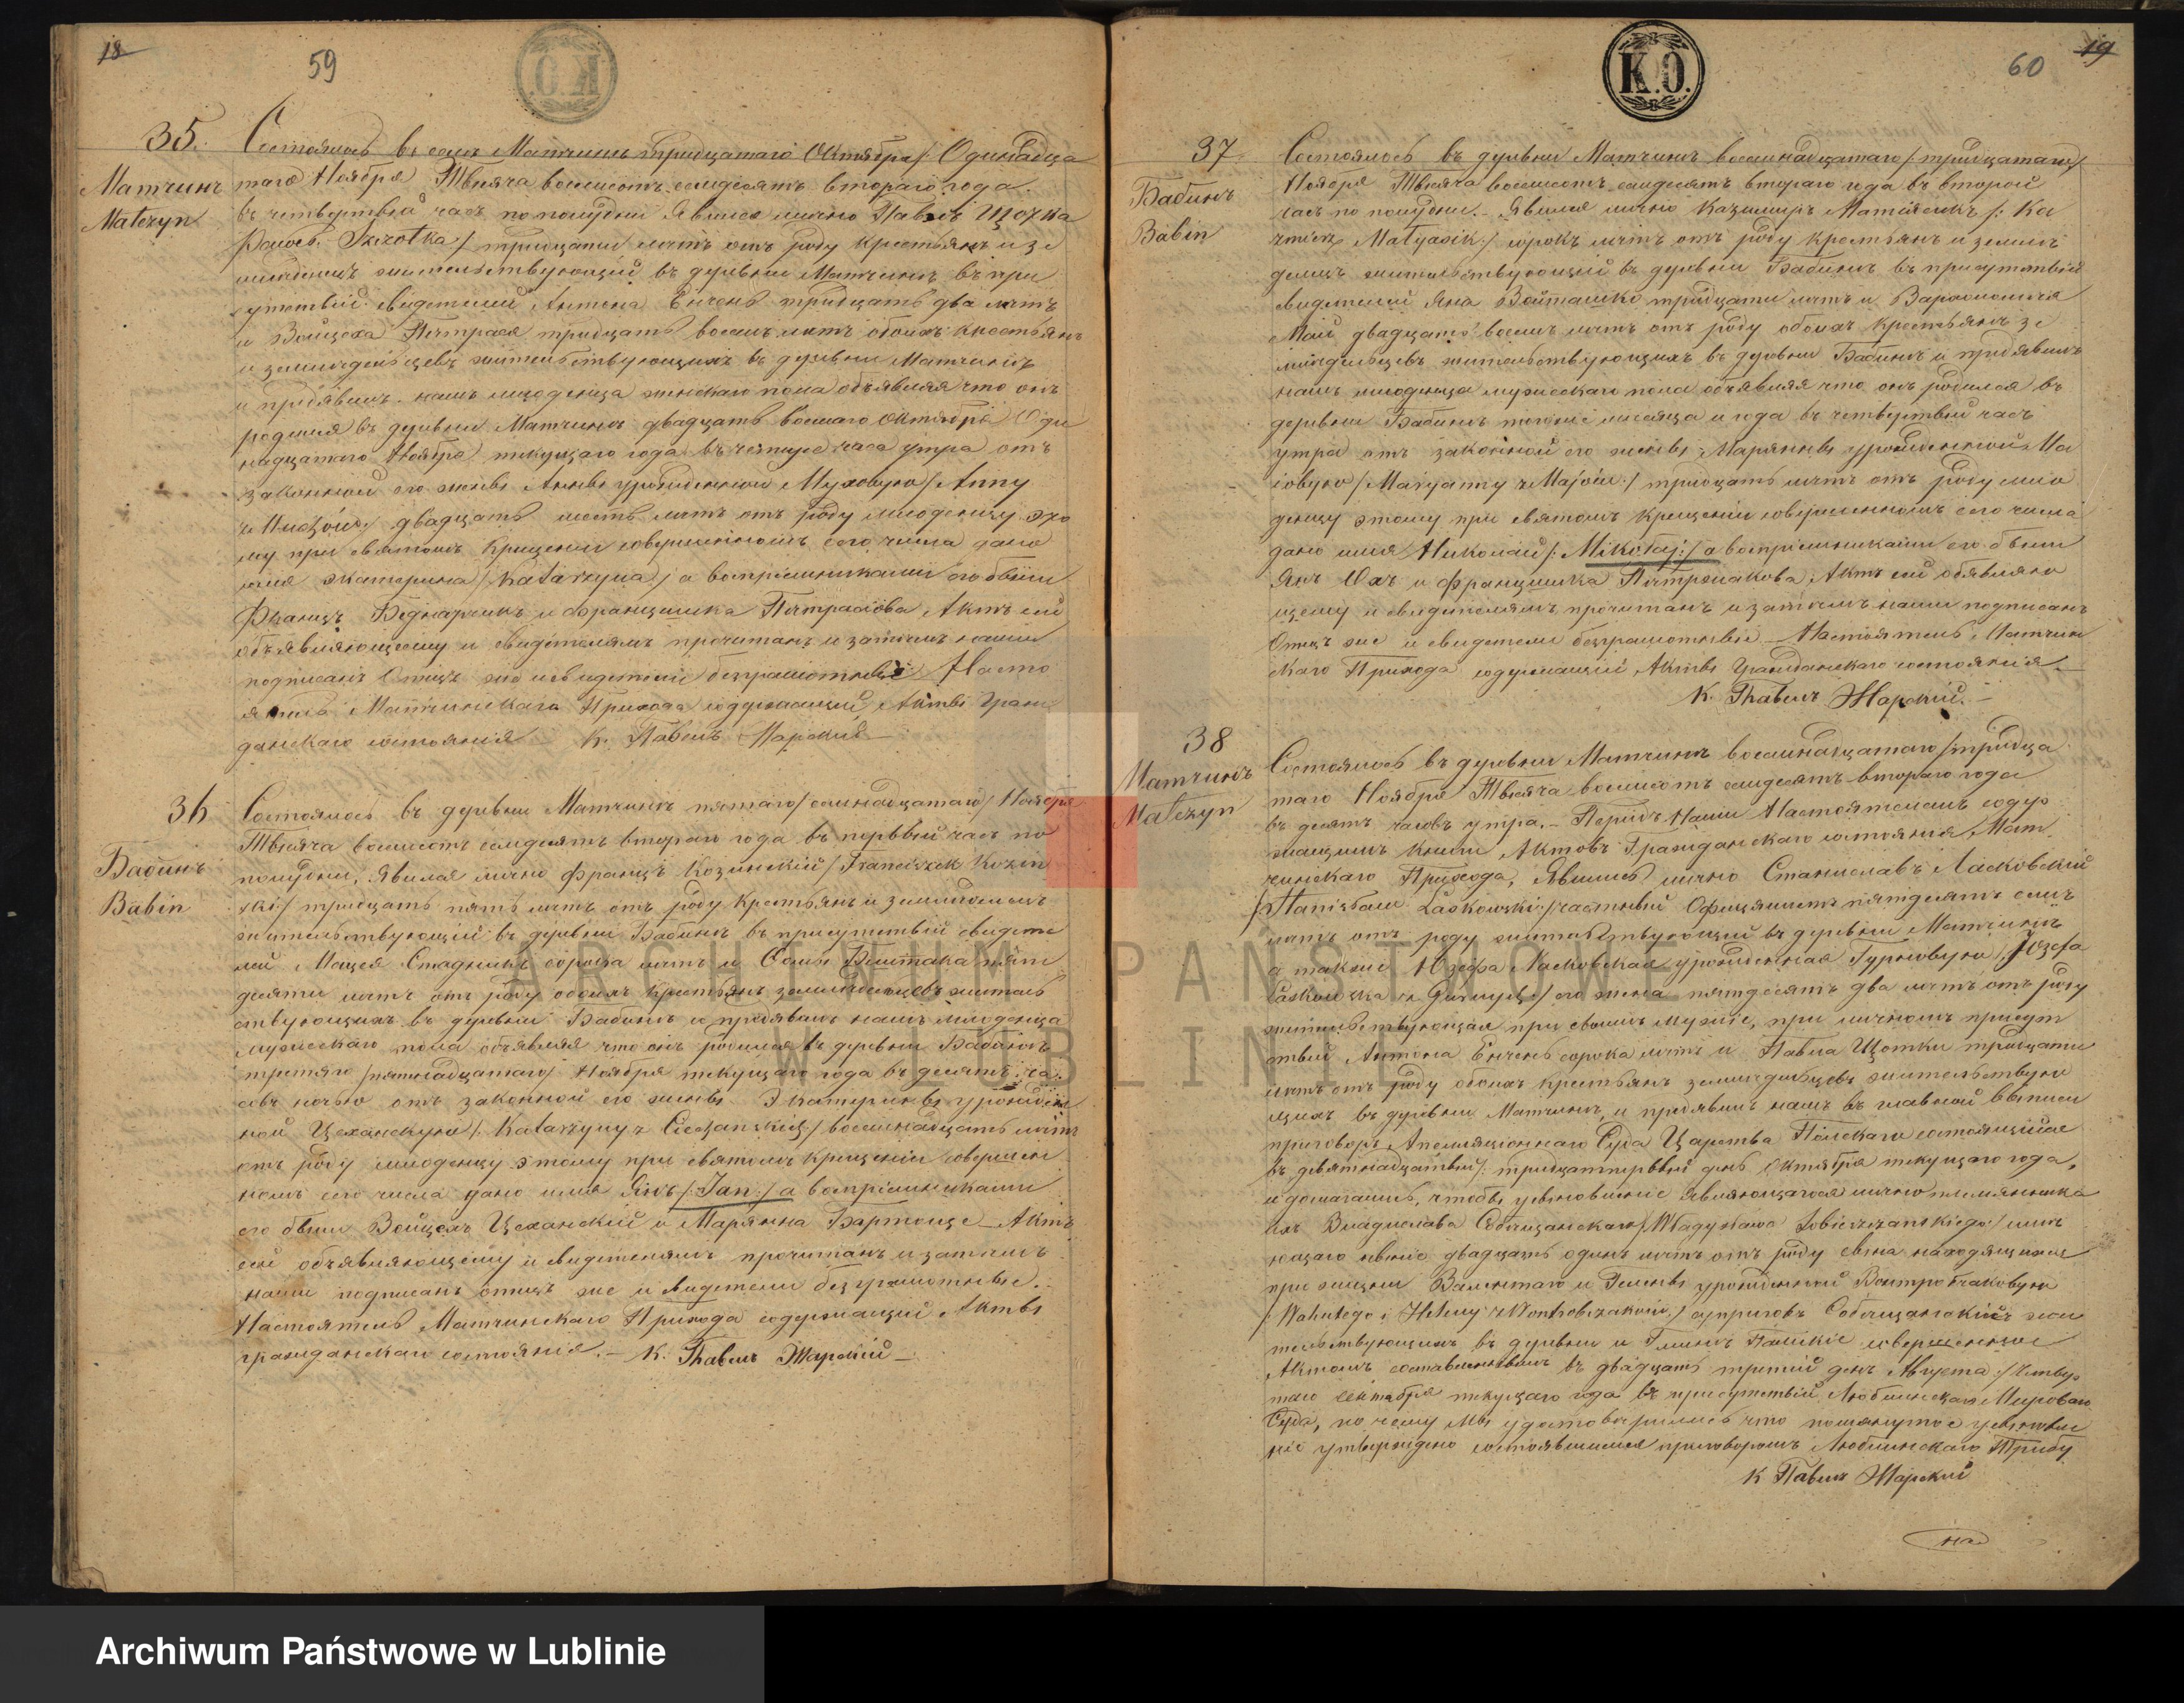 18
59
35.
Матчинъ
Matczyn
Состоялось въ селѣ Матчинѣ тридцатаго Октября /: Одинадца
таго Ноября Тысяча восемсотъ семдесятъ втораго года
въ четвертый часъ по полудни Явился лично Павелъ Щотка
/ Szczotka / тридцати лѣтъ отъ роду крестьянъ и зе
жительствующій въ деревни Матчинѣ въ при
сутствіи свидетелей Антона Енчень тридцать два лѣтъ
и Войцеха Петрася тридцать восемь лѣтъ обоихъ крестьянъ
и земледельцевъ жительствующихъ въ деревни Матчинѣ
и предявилъ намъ младенца женскаго пола объявляя что онъ
родился въ деревни Матчинѣ двадцать восмаго Октября Оди
надцатаго Ноября текущаго года въ четыре часа утра отъ
законной его жены Анны урожденной Муховую / Anny
z Muchów / двадцать шесть лѣтъ отъ роду младенцу это
му при святомъ крещеніи совершенномъ сего числа дано
имя Екатерина / Katarzyna / а воспріемниками его были
Францъ Беднарчикъ и Францишка Петрасіова Актъ сей
объявляющему и свидетелямъ прочитанъ и затѣмъ нами
подписанъ Отецъ же и свидетели безграмотные Насто
ятель Матчинскаго Прихода содержащій Акты Граж
данскаго состоянія К. Павелъ Жарскій
36
Бабинъ
Babin
Состоялось въ деревни Матчинѣ пятаго / семнадцатаго / Ноября
Тысяча восемсотъ семдесятъ втораго года въ первый часъ по
полудни, Явился лично Францъ Козинскій / Franciszek Kozin
ski / тридцать пять лѣтъ отъ роду крестьянъ и
жительствующій въ деревни Бабинѣ въ присутствіи свидете
лей Мацея Стадникъ сорока лѣтъ и пят
десяти лѣтъ отъ роду обоихъ крестьянъ земледельцевъ житель
ствующихъ въ деревни Бабинѣ и предявилъ намъ младенца
мужескаго пола объявляя что онъ родился въ деревни Бабинѣ
третяго / пятнадцатаго / Ноября текущаго года въ десять ча
совъ ночью отъ законной его жены Екатерины урожден
ной Цеханскую / Katarzyny z Ciechanskich / восемнадцать лѣтъ
отъ роду младенцу этому при святомъ крещеніи совершен
номъ сего числа дано имя Янъ / Jan / а воспріемниками
его были Войцехъ Цеханскій и Марянна Бартоще Актъ
сей объявляющему и свидетелямъ прочитанъ и затѣмъ
нами подписанъ отецъ же и свидетели безграмотные.
Настоятель Матчинскаго Прихода содержащій Акты
гражданскаго состоянія. К. Павелъ Жарскій
K.O.
60
19
37
Бабинъ
Babin
Состоялось въ деревни Матчинѣ восемнадцатаго / тридцатаго /
Ноября Тысяча восемсотъ семдесятъ втораго года въ второй
часъ по полудни. Явился лично Казимиръ Матясикъ /: Ka
Matyasik :/ сорокъ лѣтъ отъ роду крестьянъ и земле
делецъ жительствующій въ деревни Бабинѣ въ присутствіи
свидетелей Яна Войташко тридцати лѣтъ и Варѳоломея
Май двадцать восемь лѣтъ отъ роду обоихъ крестьянъ зе
мледельцевъ жительствующихъ въ деревни Бабинѣ и предявилъ
намъ младенца мужескаго пола объявляя что онъ родился въ
деревни Бабинѣ того же месяца и года въ четвертый часъ
утра отъ законной его жены Марянны урожденной Ма
іовую / Maryanny z Majów / тридцать лѣтъ отъ роду мла
денцу этому при святомъ крещеніи совершенномъ сего числа
дано имя Николай /: Mikołaj :/ а воспріемниками его были
Янъ и Францишка Актъ сей объявляю
щему и свидетелямъ прочитанъ и затѣмъ нами подписанъ
Отецъ же и свидетели безграмотные Настоятель Матчин
скаго Прихода содержащій Акты Гражданскаго состоянія.
К. Павелъ Жарскій.
38
Матчинъ
Matczyn
Состоялось въ деревни Матчинѣ восемнадцатаго / тридца
таго Ноября Тысяча восемсотъ семдесятъ втораго года
въ десять часовъ утра. Передъ Нами Настоятелемъ содер
жащимъ книги Актовъ Гражданскаго состоянія Мат
чинскаго Прихода, Явились лично Станиславъ Ласковскій
/ Stanisław Laskowski / частный Офиціялистъ пятдесятъ семь
лѣтъ отъ роду жительствующій въ деревни Матчинѣ
а также Юзефа Ласковская урожденная / Józefa
Laskowska z / его жена пятдесятъ два лѣтъ отъ роду
жительствующая при своимъ мужие, при личномъ присут
ствіи Антона Енчень сорока лѣтъ и Павла Щотки тридцати
лѣтъ отъ роду обоихъ крестьянъ земледельцевъ жительствую
щихъ въ деревни Матчинѣ и предявили намъ въ главной выписи
приговоръ Апелляціоннаго Суда Царства Польскаго состоящійся
въ девятнадцатый / тридцатпервый день Октября текущаго года,
и домагались, чтобы усыновленіе являющагося лично племянника
ихъ Владислава / Władysława Sobieszczanskiego / имѣ
ющаго ныне двадцать одинъ лѣтъ отъ роду сына находящихся
при жизни Валентаго и Гелены урожденной Вонтробчаковую
/ Walentego i Heleny z Wontrobczaków / супруговъ Собещанскихъ жи
тельствующихъ въ деревни и Гминѣ совершенное
Актомъ составленнымъ въ двадцать третій день Августа / четвер
таго Сентября текущаго года въ присутствіи Люблинскаго Мироваго
Суда, по чему Мы удостоверились что помянутое усыновле
ніе утверждено состоявшимся приговоромъ Люблинскаго Трибу
К Павелъ Жарскій
на
ARCHIWUM PAŃSTWOWE
W LUBLINIE
Archiwum Państwowe w Lublinie